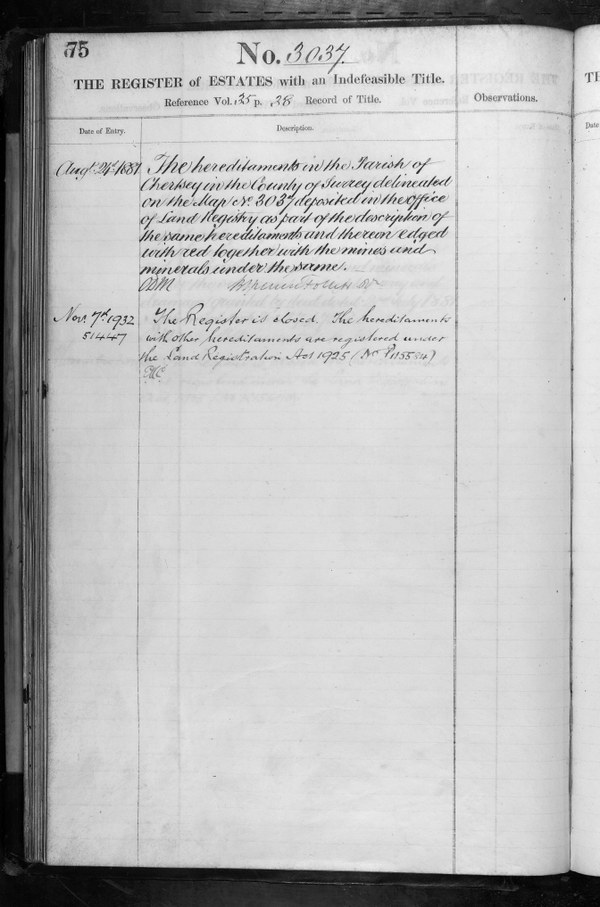 75
No. 3037.
THE REGISTER of ESTATES with an Indefeasible Title.
Reference Vol. 35 p. 28 Record of Title.
Observations.
Date of Entry.
Description.
Augt. 24th 1881
The hereditaments in the Parish of
Chertsey in the County of Surrey delineated
on the Map No. 3037 deposited in the office
of Land Registry as part of the description of
the same hereditaments and thereon edged
with red together with the mines and
minerals under the same.
Nov. 7th 1932
51447
The Register is closed. The hereditaments
with other hereditaments are registered under
the Land Registration Act 1925 (No. P115554)
TH
Date